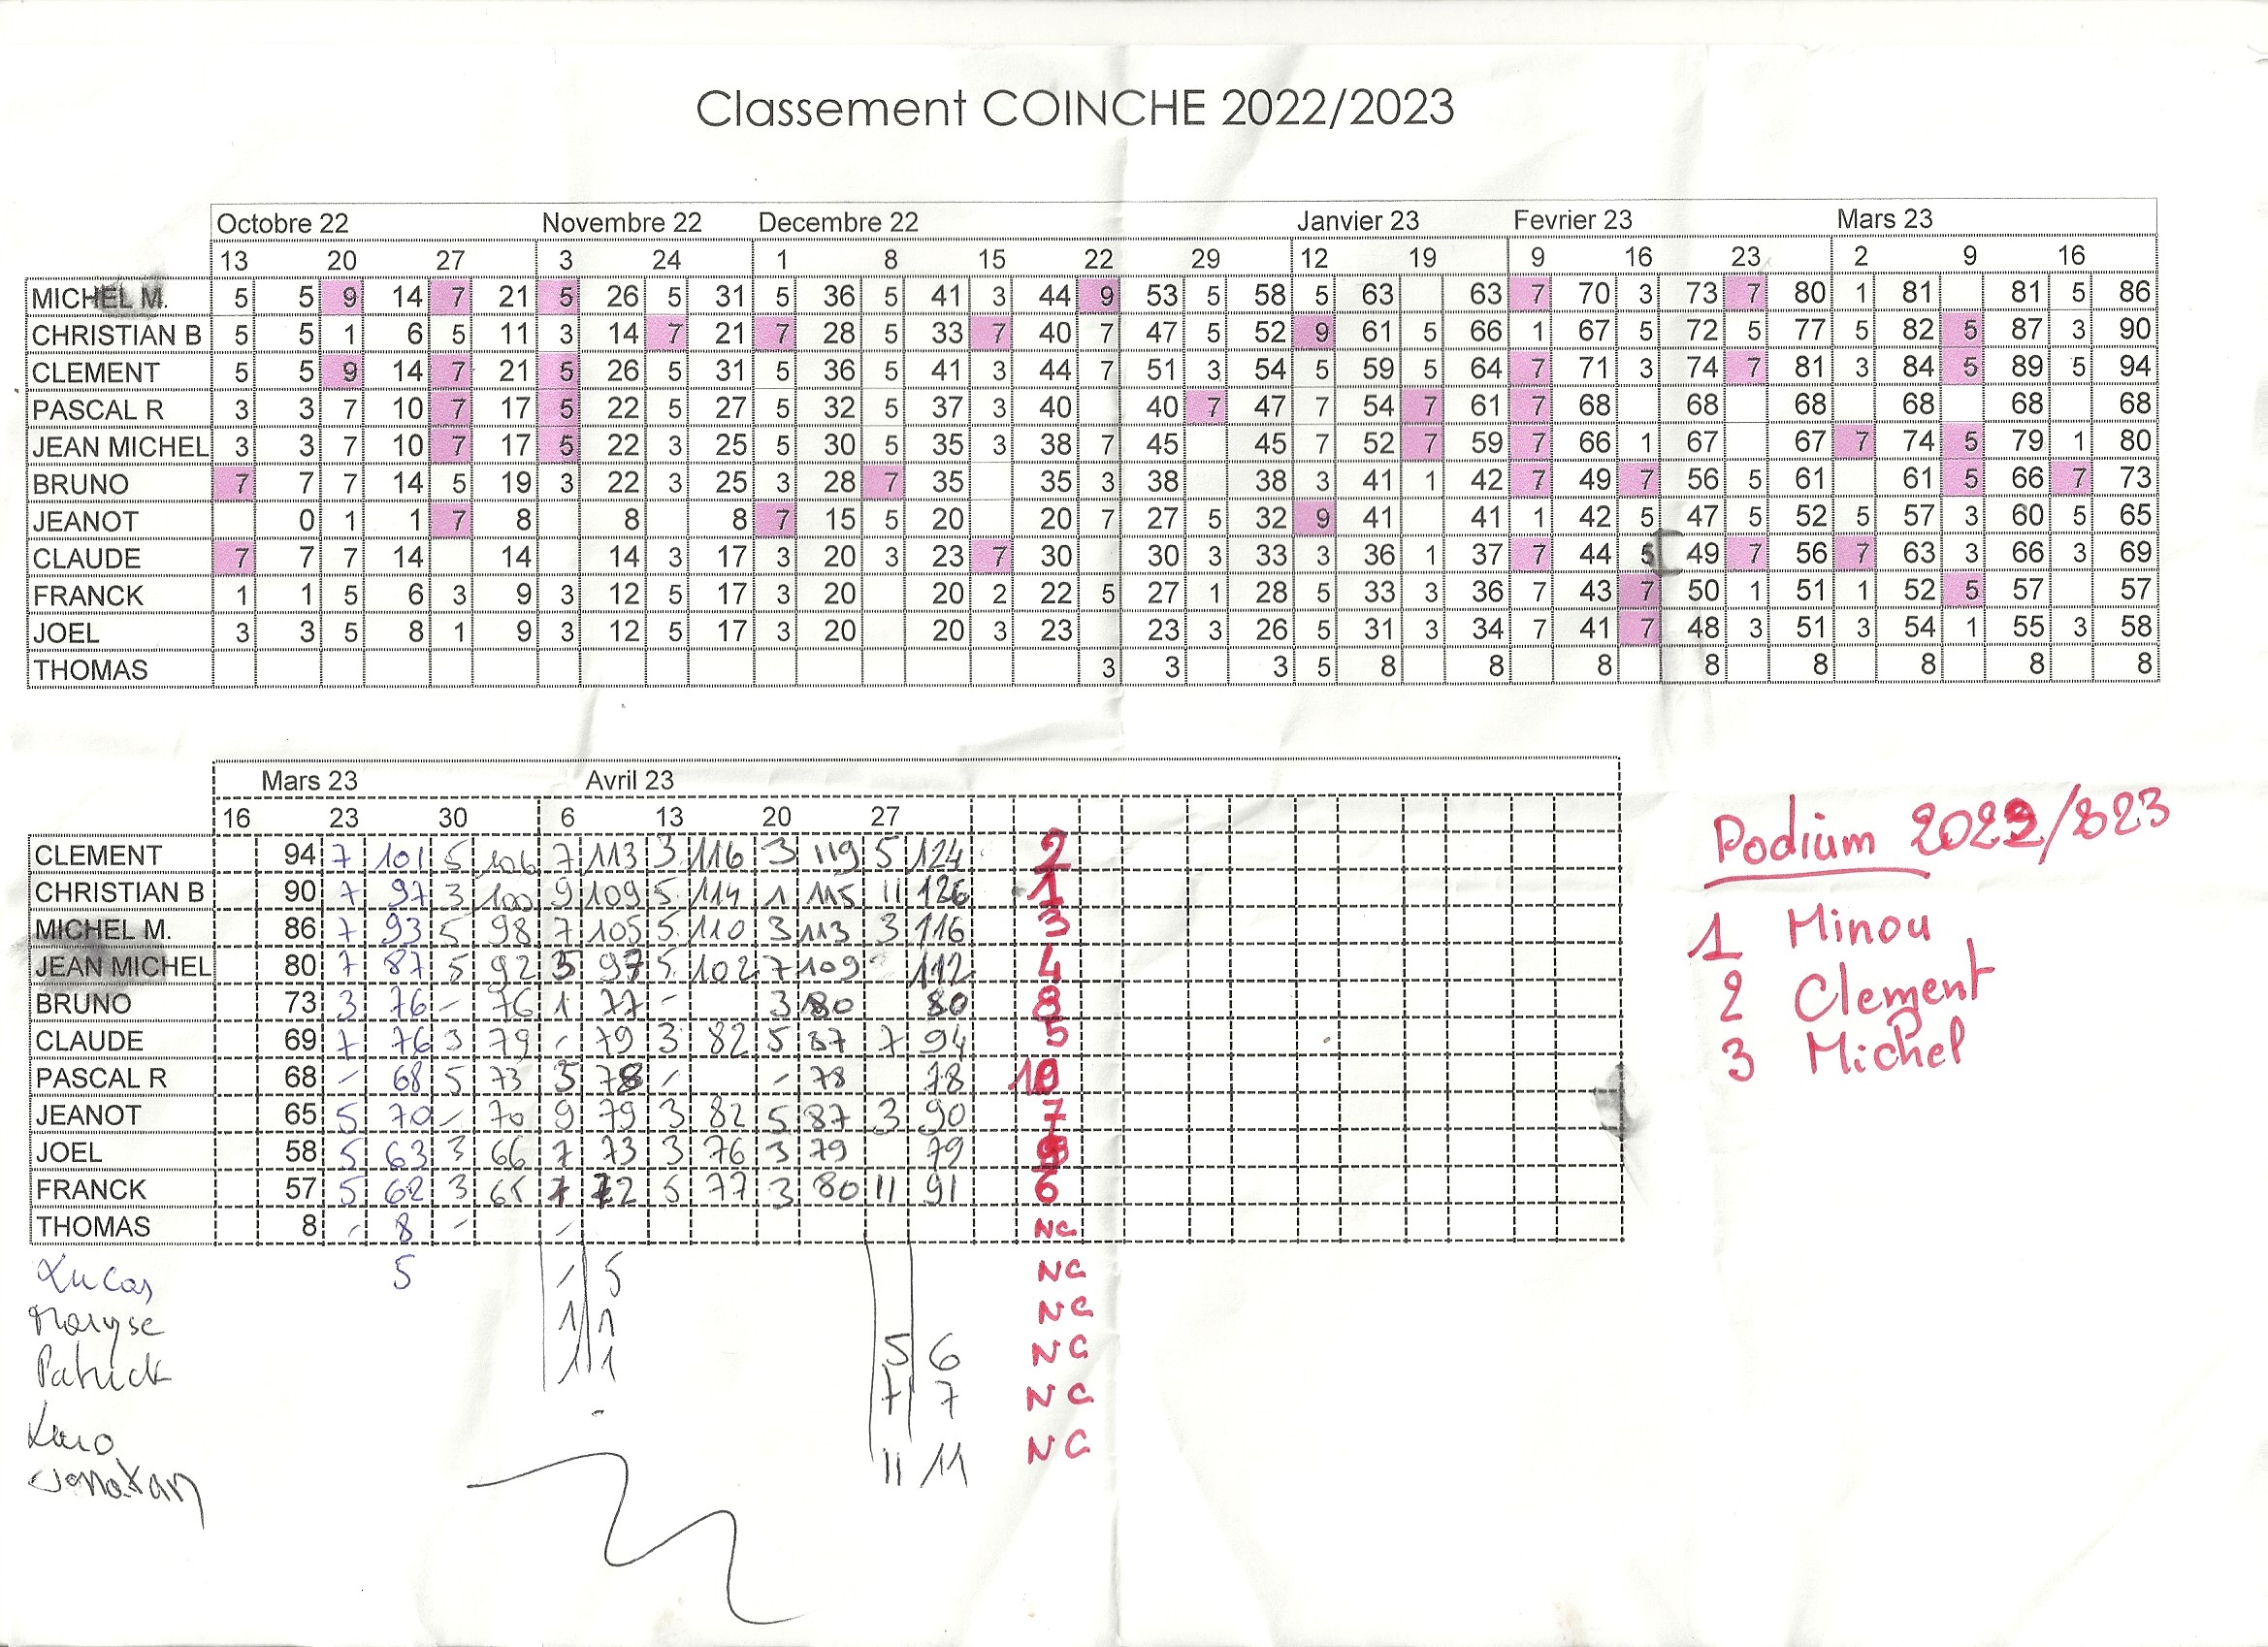 Classement COINCHE 2022/2023
Octobre 22 Novembre 22 Decembre 22 Janvier 23 Fevrier 23 Mars 23
13 20 27 3 24 1 8 15 22 29 12 19 9 16 23 2 9 16
MICHEL M. 5 5 9 14 7 21 5 26 5 31 5 36 5 41 3 44 9 53 5 58 5 63 63 7 70 3 73 7 80 1 81 81 5 86
CHRISTIAN B 5 5 1 6 5 11 3 14 7 21 7 28 5 33 7 40 7 47 5 52 9 61 5 66 1 67 5 72 5 77 5 82 5 87 3 90
CLEMENT 5 5 9 14 7 21 5 26 5 31 5 36 5 41 3 44 7 51 3 54 5 59 5 64 7 71 3 74 7 81 3 84 5 89 5 94
PASCAL R 3 3 7 10 7 17 5 22 5 27 5 32 5 37 3 40 40 7 47 7 54 7 61 7 68 68 68 68 68 68
JEAN MICHEL 3 3 7 10 7 17 5 22 3 25 5 30 5 35 3 38 7 45 45 7 52 7 59 7 66 1 67 67 7 74 5 79 1 80
BRUNO 7 7 7 14 5 19 3 22 3 25 3 28 7 35 35 3 38 38 3 41 1 42 7 49 7 56 5 61 61 5 66 7 73
JEANOT 0 1 1 7 8 8 8 7 15 5 20 20 7 27 5 32 9 41 41 1 42 5 47 5 52 5 57 3 60 5 65
CLAUDE 7 7 7 14 14 14 3 17 3 20 3 23 7 30 30 3 33 3 36 1 37 7 44 5 49 7 56 7 63 3 66 3 69
FRANCK 1 1 5 6 3 9 3 12 5 17 3 20 20 2 22 5 27 1 28 5 33 3 36 7 43 7 50 1 51 1 52 5 57 57
JOEL 3 3 5 8 1 9 3 12 5 17 3 20 20 3 23 23 3 26 5 31 3 34 7 41 7 48 3 51 3 54 1 55 3 58
THOMAS 3 3 3 5 8 8 8 8 8 8 8 8
Mars 23 Avril 23
16 23 30 6 13 20 27
CLEMENT 94 7 101 5 106 7 113 3 116 3 119 5 124 2
CHRISTIAN B 90 7 97 3 100 9 109 5 114 1 115 11 126 1
MICHEL M. 86 7 93 5 98 7 105 5 110 3 113 3 116 3
JEAN MICHEL 80 7 87 5 92 5 97 5 102 7 109 112 4
BRUNO 73 3 76 - 76 1 77 - 3 80 80 8
CLAUDE 69 7 76 3 79 - 79 3 82 5 87 7 94 5
PASCAL R 68 - 68 5 73 5 78 - - 78 78 10
JEANOT 65 5 70 - 70 9 79 3 82 5 87 3 90 7
JOEL 58 5 63 3 66 7 73 3 76 3 79 79 9
FRANCK 57 5 62 3 65 7 72 5 77 3 80 11 91 6
THOMAS 8 - 8 - - NC
Lucas 5 - 5 NC
Maryse 1 1 NC
Patrick 1 1 5 6 NC
7 7 NC
Jonatan 11 11 NC
Podium 2022/2023
1 Minou
2 Clement
3 Michel